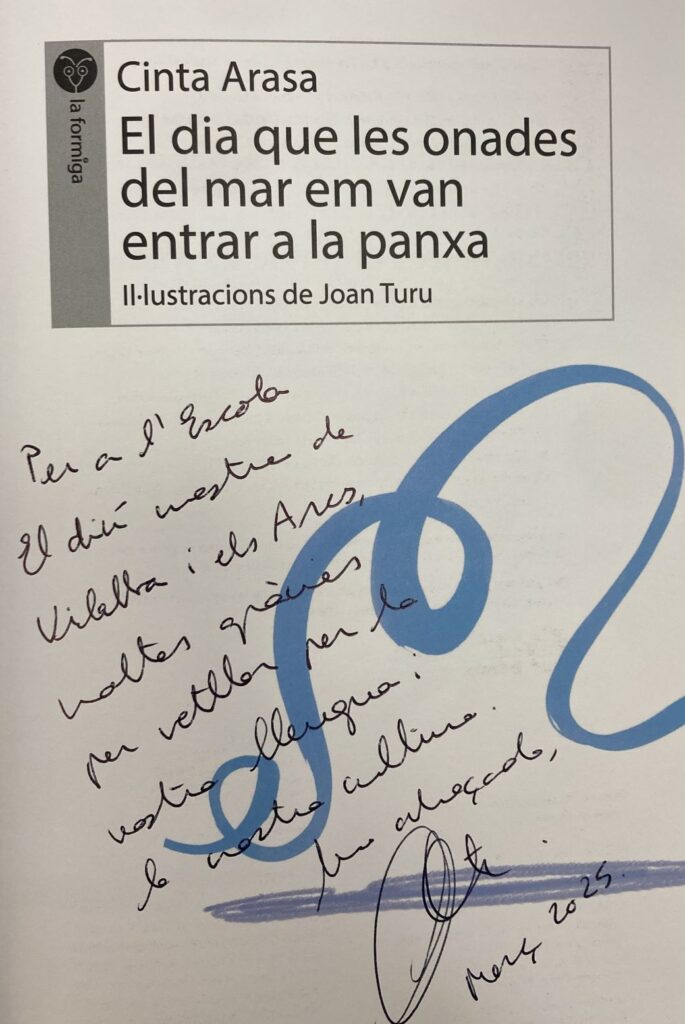 la formiga
Cinta Arasa
El dia que les onades
del mar em van
entrar a la panxa
Il·lustracions de Joan Turu
Per a l'Escola
El diví mestre de
Vilalba i els Arcs,
moltes gràcies
per vetllar per la
nostra llengua i
la nostra cultura.
Una abraçada,
Març 2025.